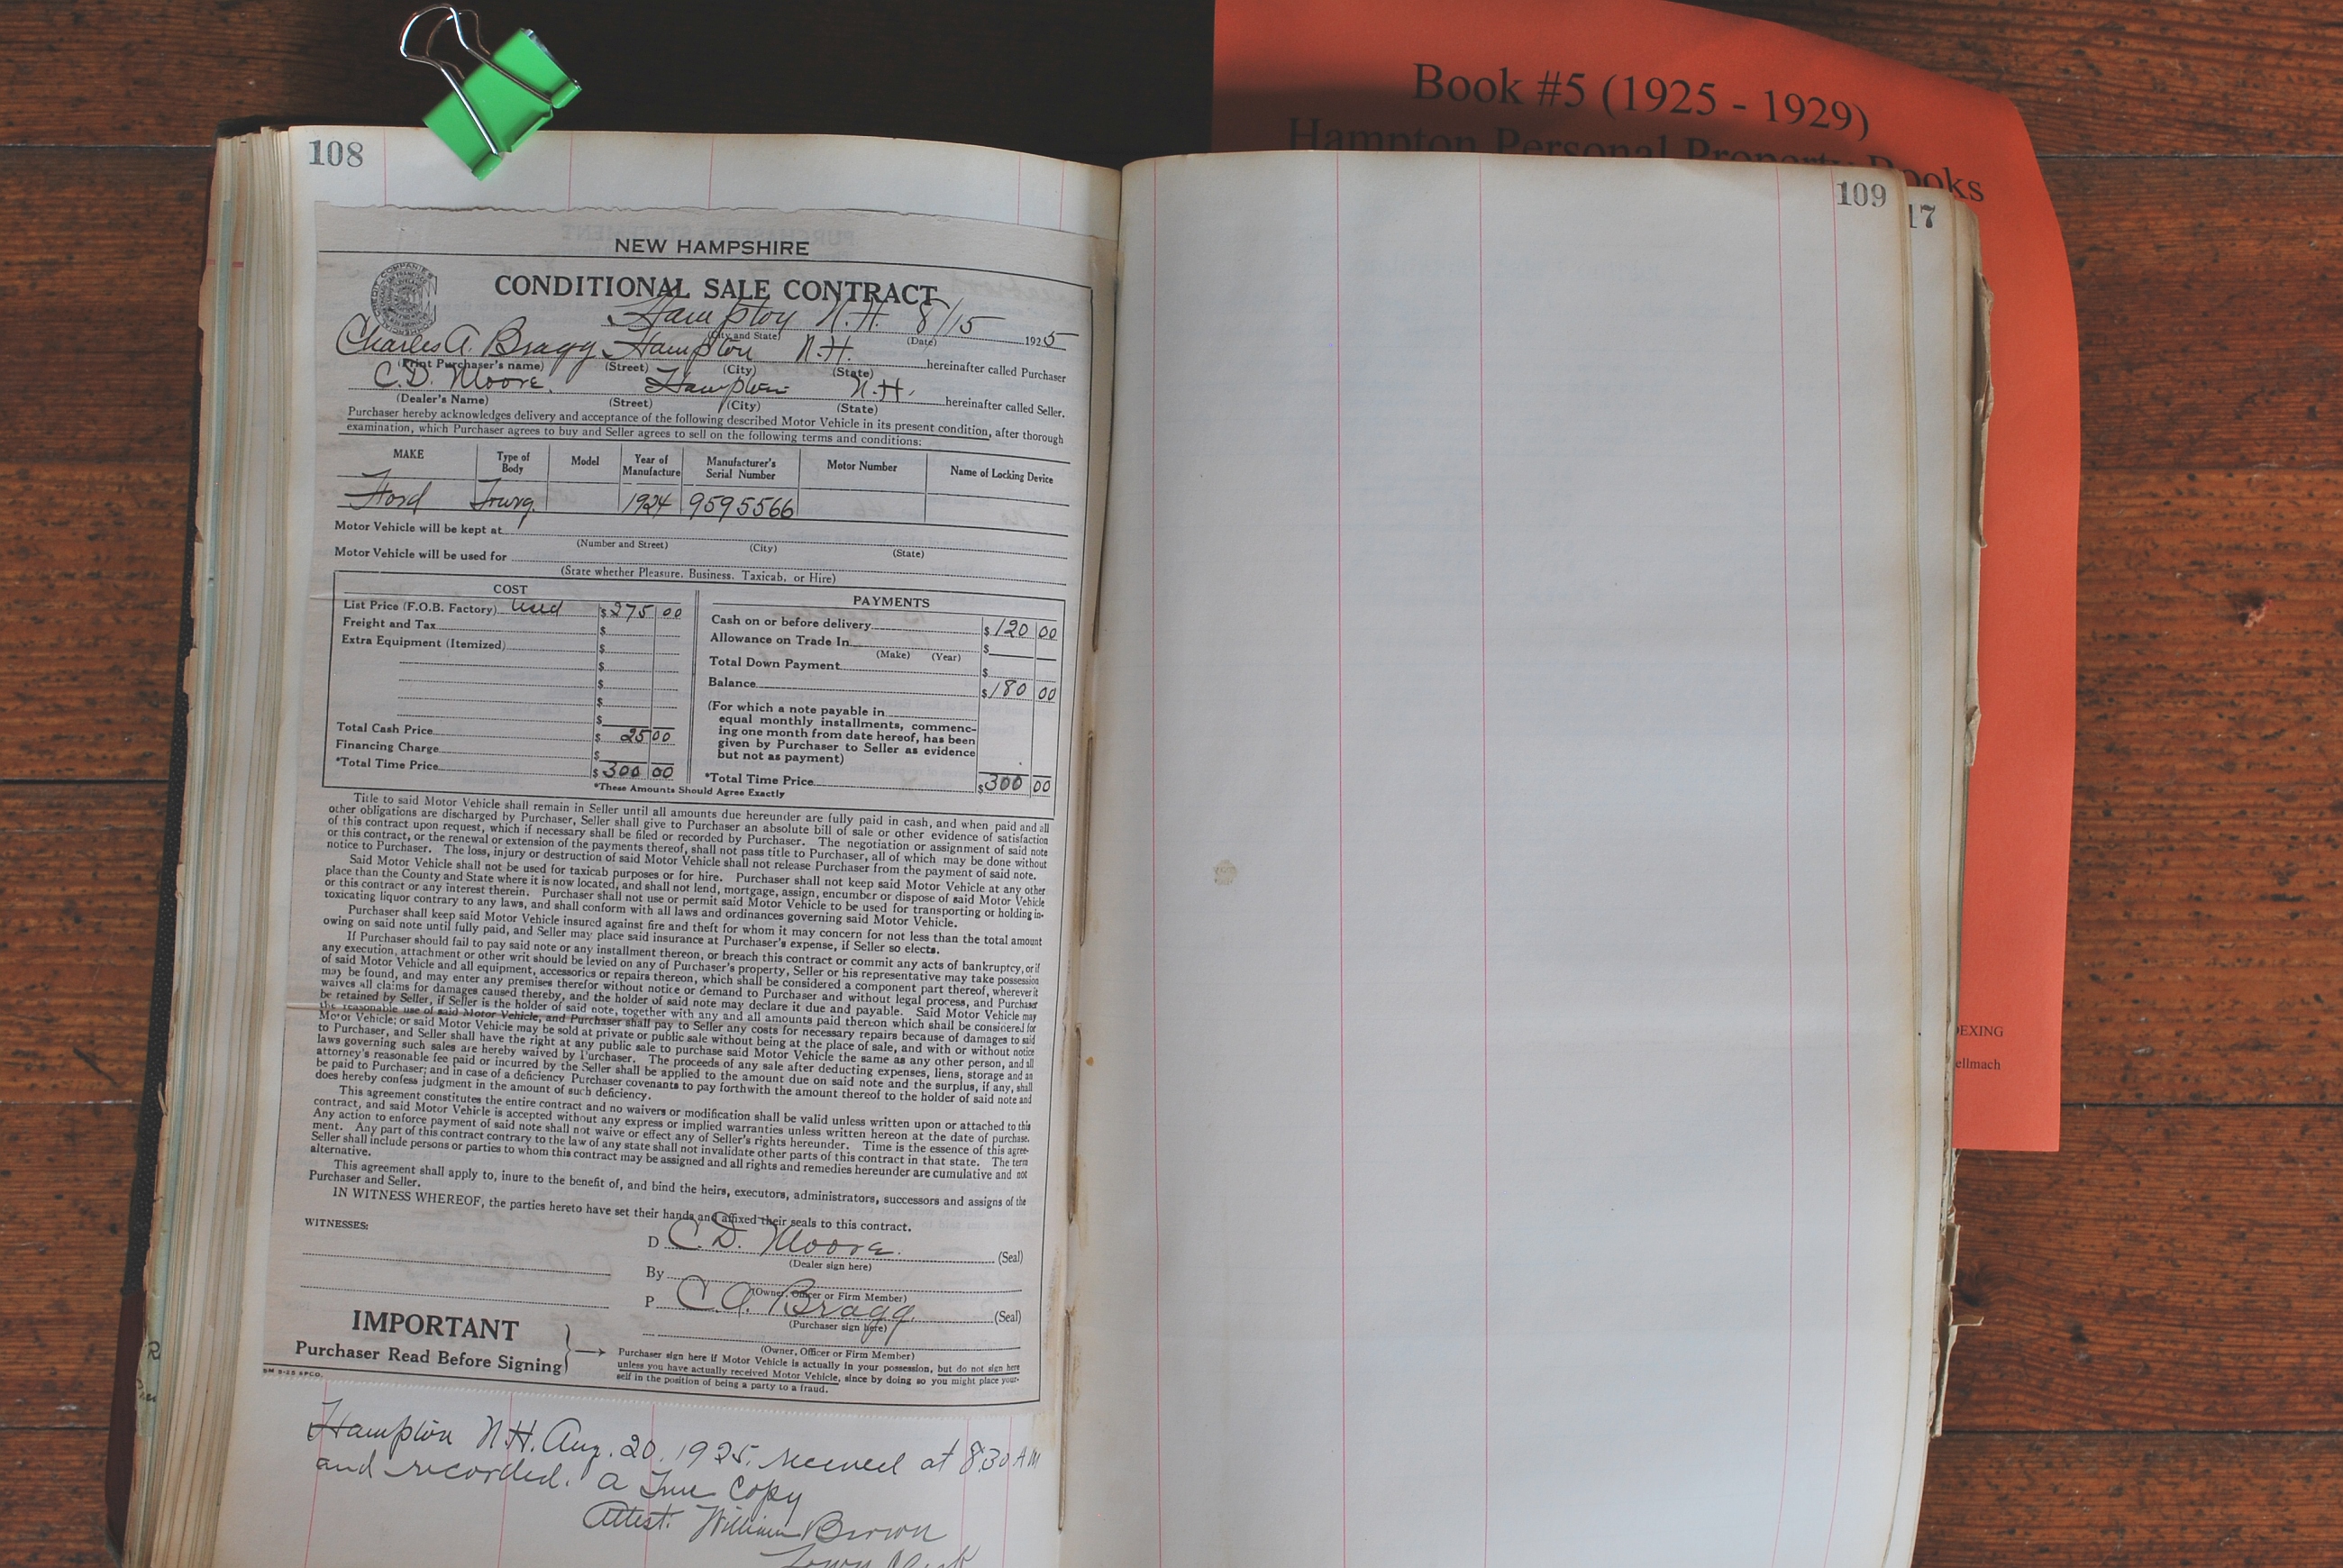 Book #5 (1925 - 1929)
Hampton Personal Property Books
108
109
17
NEW HAMPSHIRE
CONDITIONAL SALE CONTRACT
Hampton N.H. 8/15 1925
(City and State) (Date)
Charles A. Bragg Hampton N.H. hereinafter called Purchaser
(Print Purchaser's name) (Street) (City) (State)
C.D. Moore. Hampton N.H. hereinafter called Seller.
(Dealer's Name) (Street) (City) (State)
Purchaser hereby acknowledges delivery and acceptance of the following described Motor Vehicle in its present condition, after thorough
examination, which Purchaser agrees to buy and Seller agrees to sell on the following terms and conditions:
MAKE Type of Body Model Year of Manufacture Manufacturer's Serial Number Motor Number Name of Locking Device
Ford 1924 9595566
Motor Vehicle will be kept at
(Number and Street) (City) (State)
Motor Vehicle will be used for
(State whether Pleasure, Business, Taxicab, or Hire)
COST
List Price (F.O.B. Factory) Used $275 00
Freight and Tax $
Extra Equipment (Itemized) $
$
$
$
$
Total Cash Price $ 25 00
Financing Charge $
*Total Time Price $300 00
PAYMENTS
Cash on or before delivery $120 00
Allowance on Trade In $
(Make) (Year)
Total Down Payment $
Balance $180 00
(For which a note payable in
equal monthly installments, commenc-
ing one month from date hereof, has been
given by Purchaser to Seller as evidence
but not as payment)
*Total Time Price $300 00
*These Amounts Should Agree Exactly
Title to said Motor Vehicle shall remain in Seller until all amounts due hereunder are fully paid in cash, and when paid and all
other obligations are discharged by Purchaser, Seller shall give to Purchaser an absolute bill of sale or other evidence of satisfaction
of this contract upon request, which if necessary shall be filed or recorded by Purchaser. The negotiation or assignment of said note
or this contract, or the renewal or extension of the payments thereof, shall not pass title to Purchaser, all of which may be done without
notice to Purchaser. The loss, injury or destruction of said Motor Vehicle shall not release Purchaser from the payment of said note.
Said Motor Vehicle shall not be used for taxicab purposes or for hire. Purchaser shall not keep said Motor Vehicle at any other
place than the County and State where it is now located, and shall not lend, mortgage, assign, encumber or dispose of said Motor Vehicle
or this contract or any interest therein. Purchaser shall not use or permit said Motor Vehicle to be used for transporting or holding in-
toxicating liquor contrary to any laws, and shall conform with all laws and ordinances governing said Motor Vehicle.
Purchaser shall keep said Motor Vehicle insured against fire and theft for whom it may concern for not less than the total amount
owing on said note until fully paid, and Seller may place said insurance at Purchaser's expense, if Seller so elects.
If Purchaser should fail to pay said note or any installment thereon, or breach this contract or commit any acts of bankruptcy, or if
any execution, attachment or other writ should be levied on any of Purchaser's property, Seller or his representative may take possession
of said Motor Vehicle and all equipment, accessories or repairs thereon, which shall be considered a component part thereof, wherever it
may be found, and may enter any premises therefor without notice or demand to Purchaser and without legal process, and Purchaser
waives all claims for damages caused thereby, and the holder of said note may declare it due and payable. Said Motor Vehicle may
be retained by Seller, if Seller is the holder of said note, together with any and all amounts paid thereon which shall be considered for
the reasonable use of said Motor Vehicle, and Purchaser shall pay to Seller any costs for necessary repairs because of damages to said
Motor Vehicle; or said Motor Vehicle may be sold at private or public sale without being at the place of sale, and with or without notice
to Purchaser, and Seller shall have the right at any public sale to purchase said Motor Vehicle the same as any other person, and all
laws governing such sales are hereby waived by Purchaser. The proceeds of any sale after deducting expenses, liens, storage and an
attorney's reasonable fee paid or incurred by the Seller shall be applied to the amount due on said note and the surplus, if any, shall
be paid to Purchaser; and in case of a deficiency Purchaser covenants to pay forthwith the amount thereof to the holder of said note and
does hereby confess judgment in the amount of such deficiency.
This agreement constitutes the entire contract and no waivers or modification shall be valid unless written upon or attached to this
contract, and said Motor Vehicle is accepted without any express or implied warranties unless written hereon at the date of purchase.
Any action to enforce payment of said note shall not waive or effect any of Seller's rights hereunder. Time is the essence of this agree-
ment. Any part of this contract contrary to the law of any state shall not invalidate other parts of this contract in that state. The term
Seller shall include persons or parties to whom this contract may be assigned and all rights and remedies hereunder are cumulative and not
alternative.
This agreement shall apply to, inure to the benefit of, and bind the heirs, executors, administrators, successors and assigns of the
Purchaser and Seller.
IN WITNESS WHEREOF, the parties hereto have set their hands and affixed their seals to this contract.
WITNESSES:
D C.D. Moore. (Seal)
(Dealer sign here)
By
(Owner, Officer or Firm Member)
P. C. A. Bragg (Seal)
(Purchaser sign here)
(Owner, Officer or Firm Member)
IMPORTANT
Purchaser Read Before Signing
Purchaser sign here if Motor Vehicle is actually in your possession, but do not sign here
unless you have actually received Motor Vehicle, since by doing so you might place your-
self in the position of being a party to a fraud.
Hampton N.H. Aug. 20, 1925, received at 8:30 AM
and recorded. A True Copy
Attest: William Brown
Town Clerk
EXING
ellmach